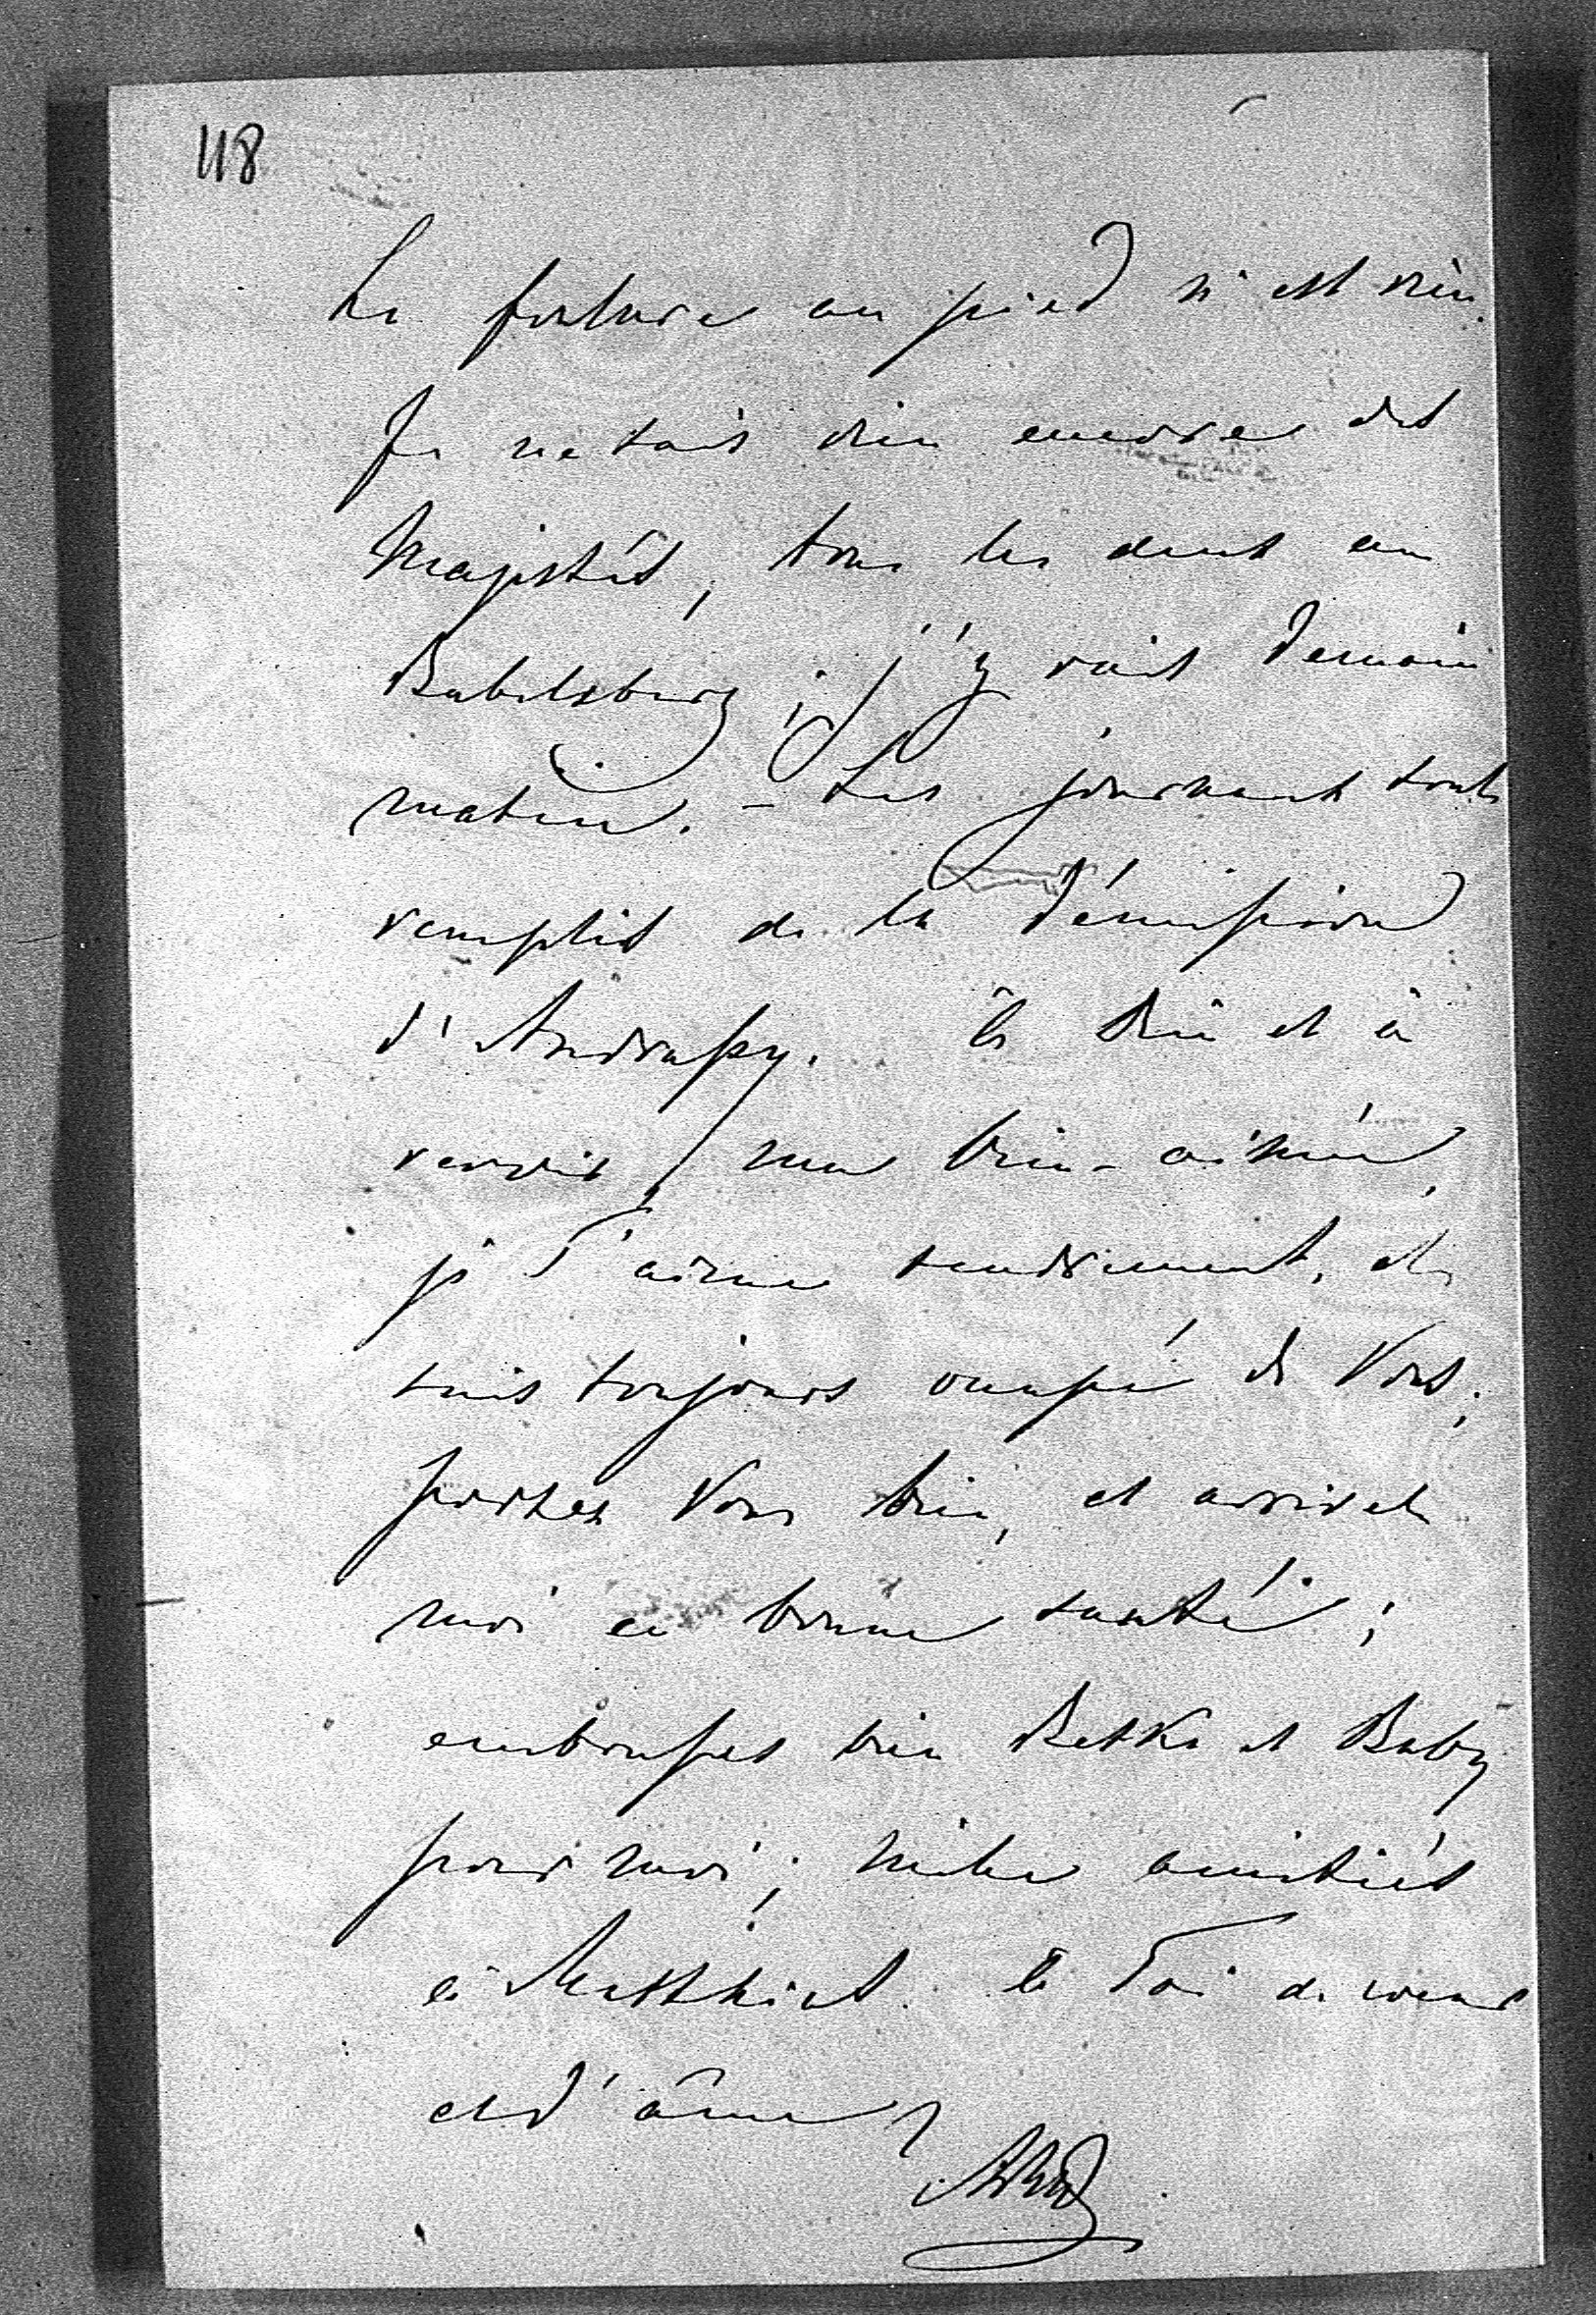 118
La foulure au pied n'est rien.
Je ne sais rien encore des
Majestés, tous les deux au
Babelsberg; j'y vais demain
matin. – Les journaux sont
remplis de la démission
d'Andrassy. Et bien et à
revoir, ma bien-aimée,
je T'aime tendrement, et
suis toujours occupé de Vous;
portez Vous bien, et arrivez
moi en bonne santé;
embrasses bien Betka et Baby
pour moi; mille amitiés
à Matthias. à Toi de coeur
et d'âme